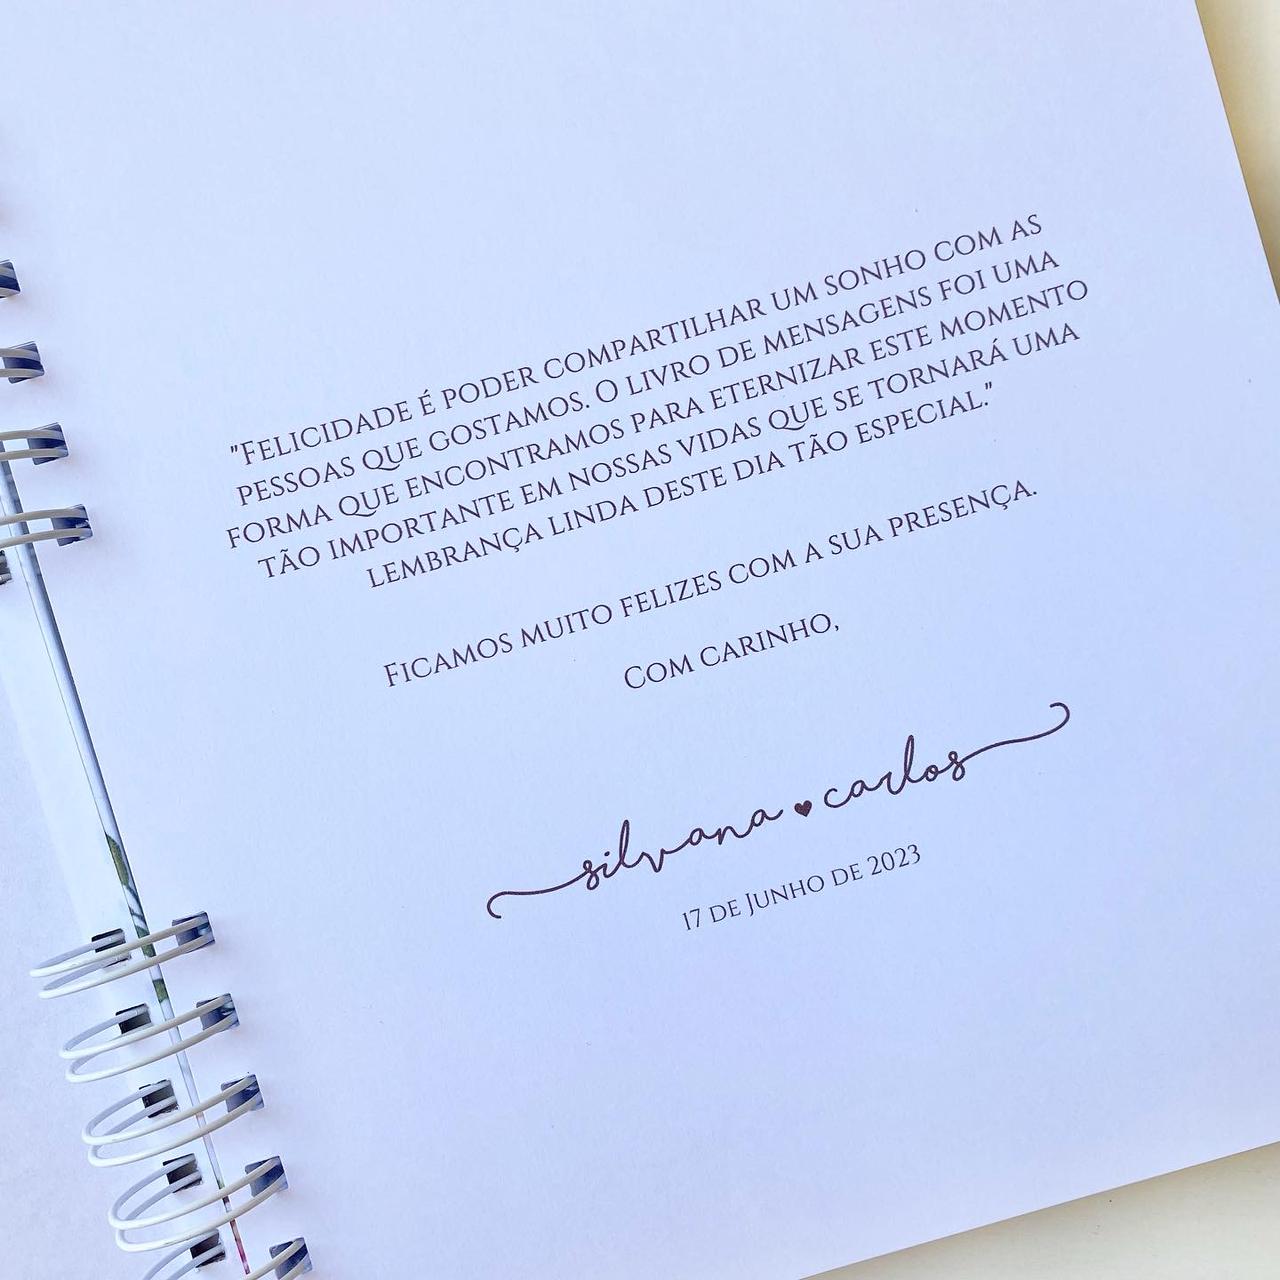 "Felicidade é poder compartilhar um sonho com as
pessoas que gostamos. O livro de mensagens foi uma
forma que encontramos para eternizar este momento
tão importante em nossas vidas que se tornará uma
lembrança linda deste dia tão especial."
Ficamos muito felizes com a sua presença.
Com carinho,
silvana ♥ carlos
17 de Junho de 2023